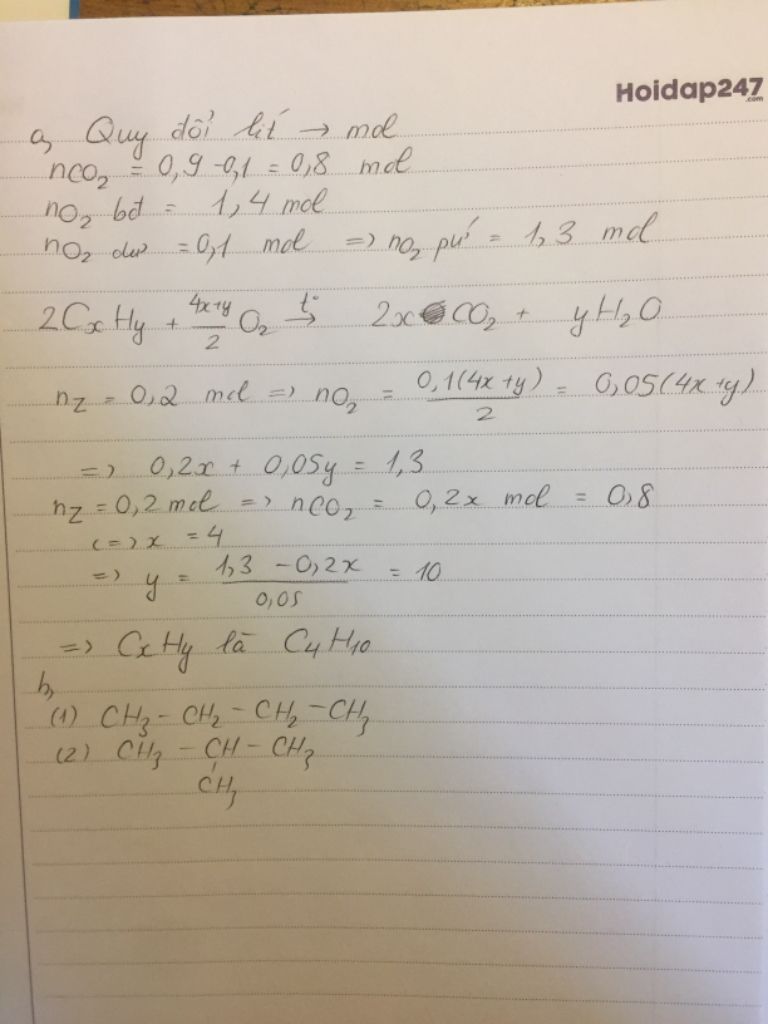 Hoidap247
.com
a, Quy đổi lít → mol
nCO₂ = 0,9 - 0,1 = 0,8 mol
nO₂ bđ = 1,4 mol
nO₂ dư = 0,1 mol => nO₂ pứ = 1,3 mol
2CxHy + (4x+y)/2 O₂ t°→ 2x CO₂ + yH₂O
nZ = 0,2 mol => nO₂ = 0,1(4x+y)/2 = 0,05(4x+y)
=> 0,2x + 0,05y = 1,3
nZ = 0,2 mol => nCO₂ = 0,2x mol = 0,8
<=> x = 4
=> y = (1,3 - 0,2x)/0,05 = 10
=> CxHy là C₄H₁₀
b,
(1) CH₃ - CH₂ - CH₂ - CH₃
(2) CH₃ - CH - CH₃
CH₃